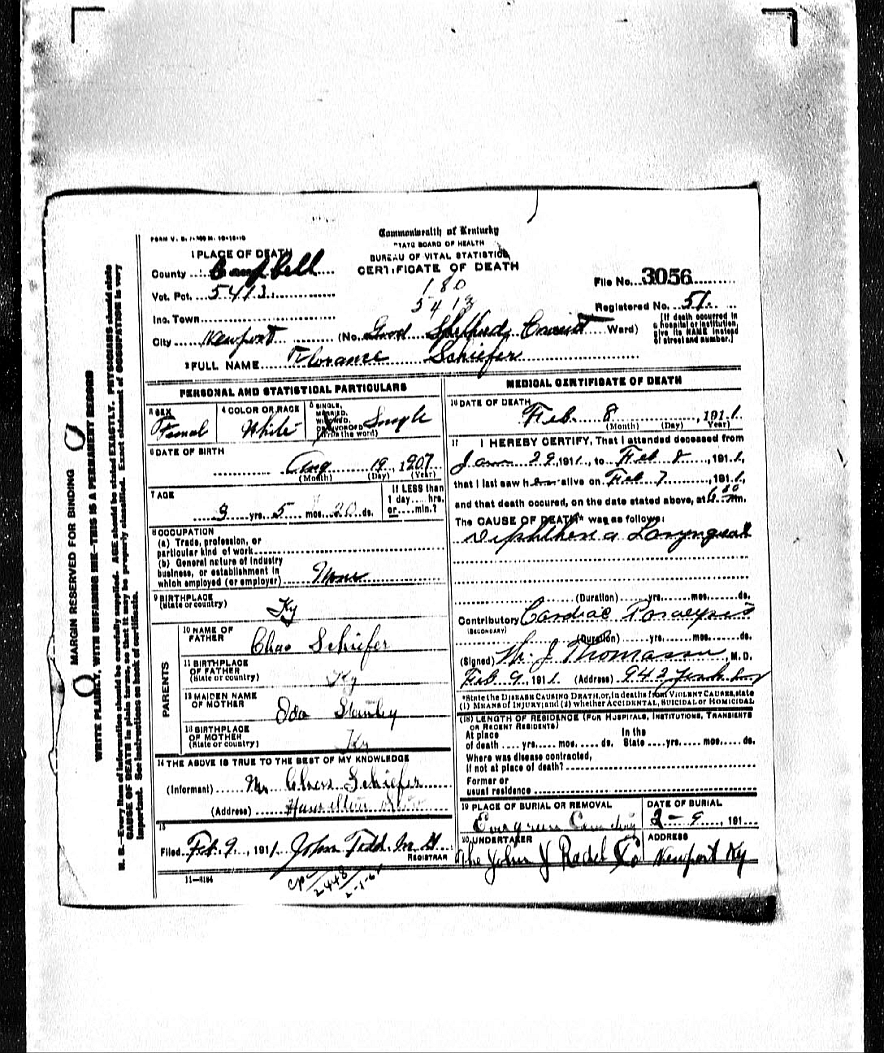 FORM V. S. 7
Commonwealth of Kentucky
STATE BOARD OF HEALTH
BUREAU OF VITAL STATISTICS
CERTIFICATE OF DEATH
1 PLACE OF DEATH
County Campbell
Vot. Pct. 5413
180
5413
File No. 3056
Registered No. 51
Inc. Town
City Newport (No. Good Shepherd Ward)
[If death occurred in a hospital or institution, give its NAME instead of street and number.]
2 FULL NAME Florance Schiefer
PERSONAL AND STATISTICAL PARTICULARS
3 SEX Femal
4 COLOR OR RACE White
5 SINGLE, MARRIED, WIDOWED, OR DIVORCED (Write the word) Single
6 DATE OF BIRTH
Aug 19, 1907
(Month) (Day) (Year)
7 AGE
3 yrs. 5 mos. 20 ds.
If LESS than 1 day.... hrs. or.... min.?
8 OCCUPATION
(a) Trade, profession, or particular kind of work
(b) General nature of industry business, or establishment in which employed (or employer) None
9 BIRTHPLACE (State or country) Ky
PARENTS
10 NAME OF FATHER Chas Schiefer
11 BIRTHPLACE OF FATHER (State or country) Ky
12 MAIDEN NAME OF MOTHER Ida
13 BIRTHPLACE OF MOTHER (State or country) Ky
14 THE ABOVE IS TRUE TO THE BEST OF MY KNOWLEDGE
(Informant) Mr Chas Schiefer
(Address) Hamilton
15
Filed Feb 9, 1911 John Todd M D
REGISTRAR
11-4184
MEDICAL CERTIFICATE OF DEATH
16 DATE OF DEATH
Feb 8, 1911
(Month) (Day) (Year)
17 I HEREBY CERTIFY, That I attended deceased from
Jan 29, 1911, to Feb 8, 1911,
that I last saw her alive on Feb 7, 1911,
and that death occured, on the date stated above, at m.
The CAUSE OF DEATH* was as follows:
Diphtheria Laryngeal
(Duration) yrs. mos. ds.
Contributory Cardiac Paralysis
(SECONDARY)
(Duration) yrs. mos. ds.
(Signed) J Thomasson, M.D.
Feb 9, 1911 (Address) 942
*State the DISEASE CAUSING DEATH, or, in deaths from VIOLENT CAUSES, state (1) MEANS OF INJURY; and (2) whether ACCIDENTAL, SUICIDAL or HOMICIDAL
(18) LENGTH OF RESIDENCE (FOR HOSPITALS, INSTITUTIONS, TRANSIENTS OR RECENT RESIDENTS)
At place of death.... yrs.... mos.... ds. In the State.... yrs.... mos.... ds.
Where was disease contracted, if not at place of death?
Former or usual residence
19 PLACE OF BURIAL OR REMOVAL
Evergreen Cemetery
DATE OF BURIAL
2-9, 191
20 UNDERTAKER
The John J Radel Co
ADDRESS
Newport Ky
MARGIN RESERVED FOR BINDING
WRITE PLAINLY, WITH UNFADING INK—THIS IS A PERMANENT RECORD
N. B.—Every item of information should be carefully supplied. AGE should be stated EXACTLY. PHYSICIANS should state
CAUSE OF DEATH in plain terms, so that it may be properly classified. Exact statement of OCCUPATION is very
important. See instructions on back of certificate.